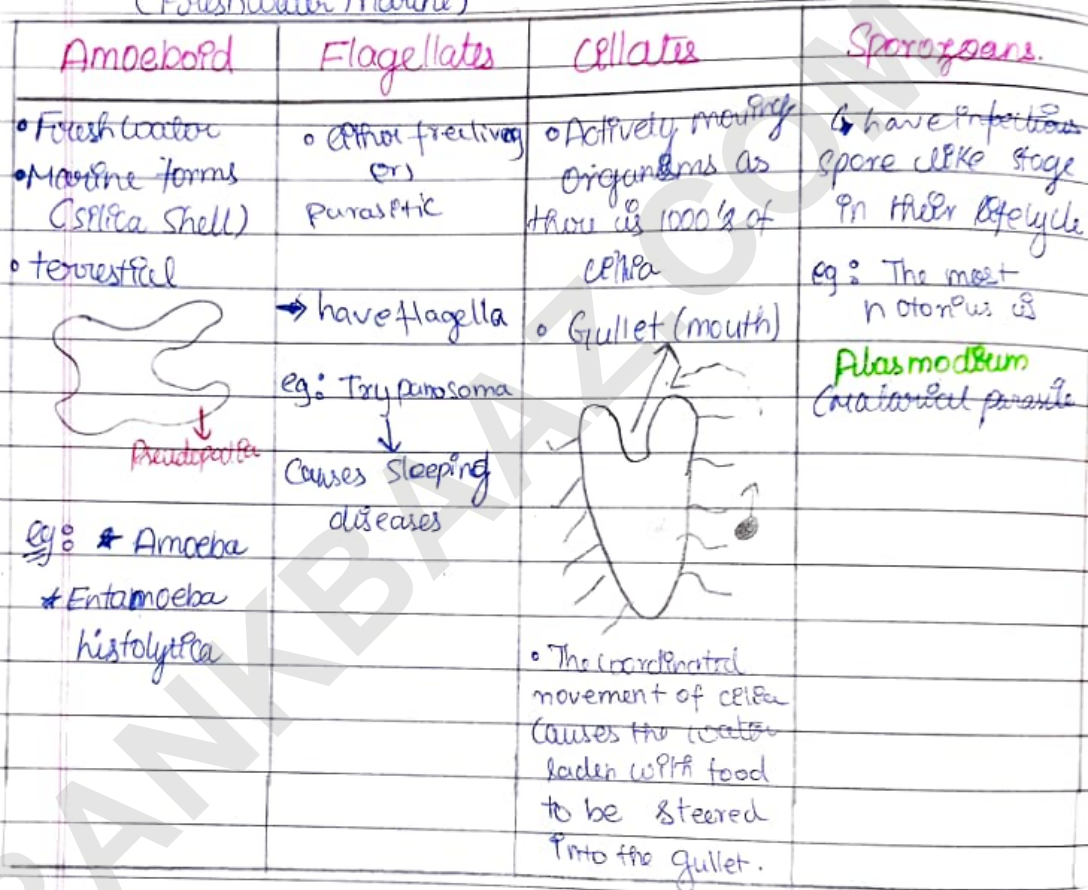 (Freshwater Marine)
Amoeboid
• Freshwater
• Marine forms
(silica Shell)
• terrestial
Pseudopodia
eg: * Amoeba
* Entamoeba
histolytica
Flagellates
• either freeliving
(or)
parasitic
→ have flagella
eg: Trypanosoma
↓
Causes Sleeping
diseases
Cilliates
• Actively moving
organisms as
there is 1000's of
cilia
• Gullet (mouth)
• The coordinated
movement of cilia
Causes the water
laden with food
to be steered
into the gullet.
Sporozoans.
↳ have infectious
spore like stage
in their lifecycle
eg: The most
notorius is
Plasmodium
(malarical parasite
RANKBAAZ.COM